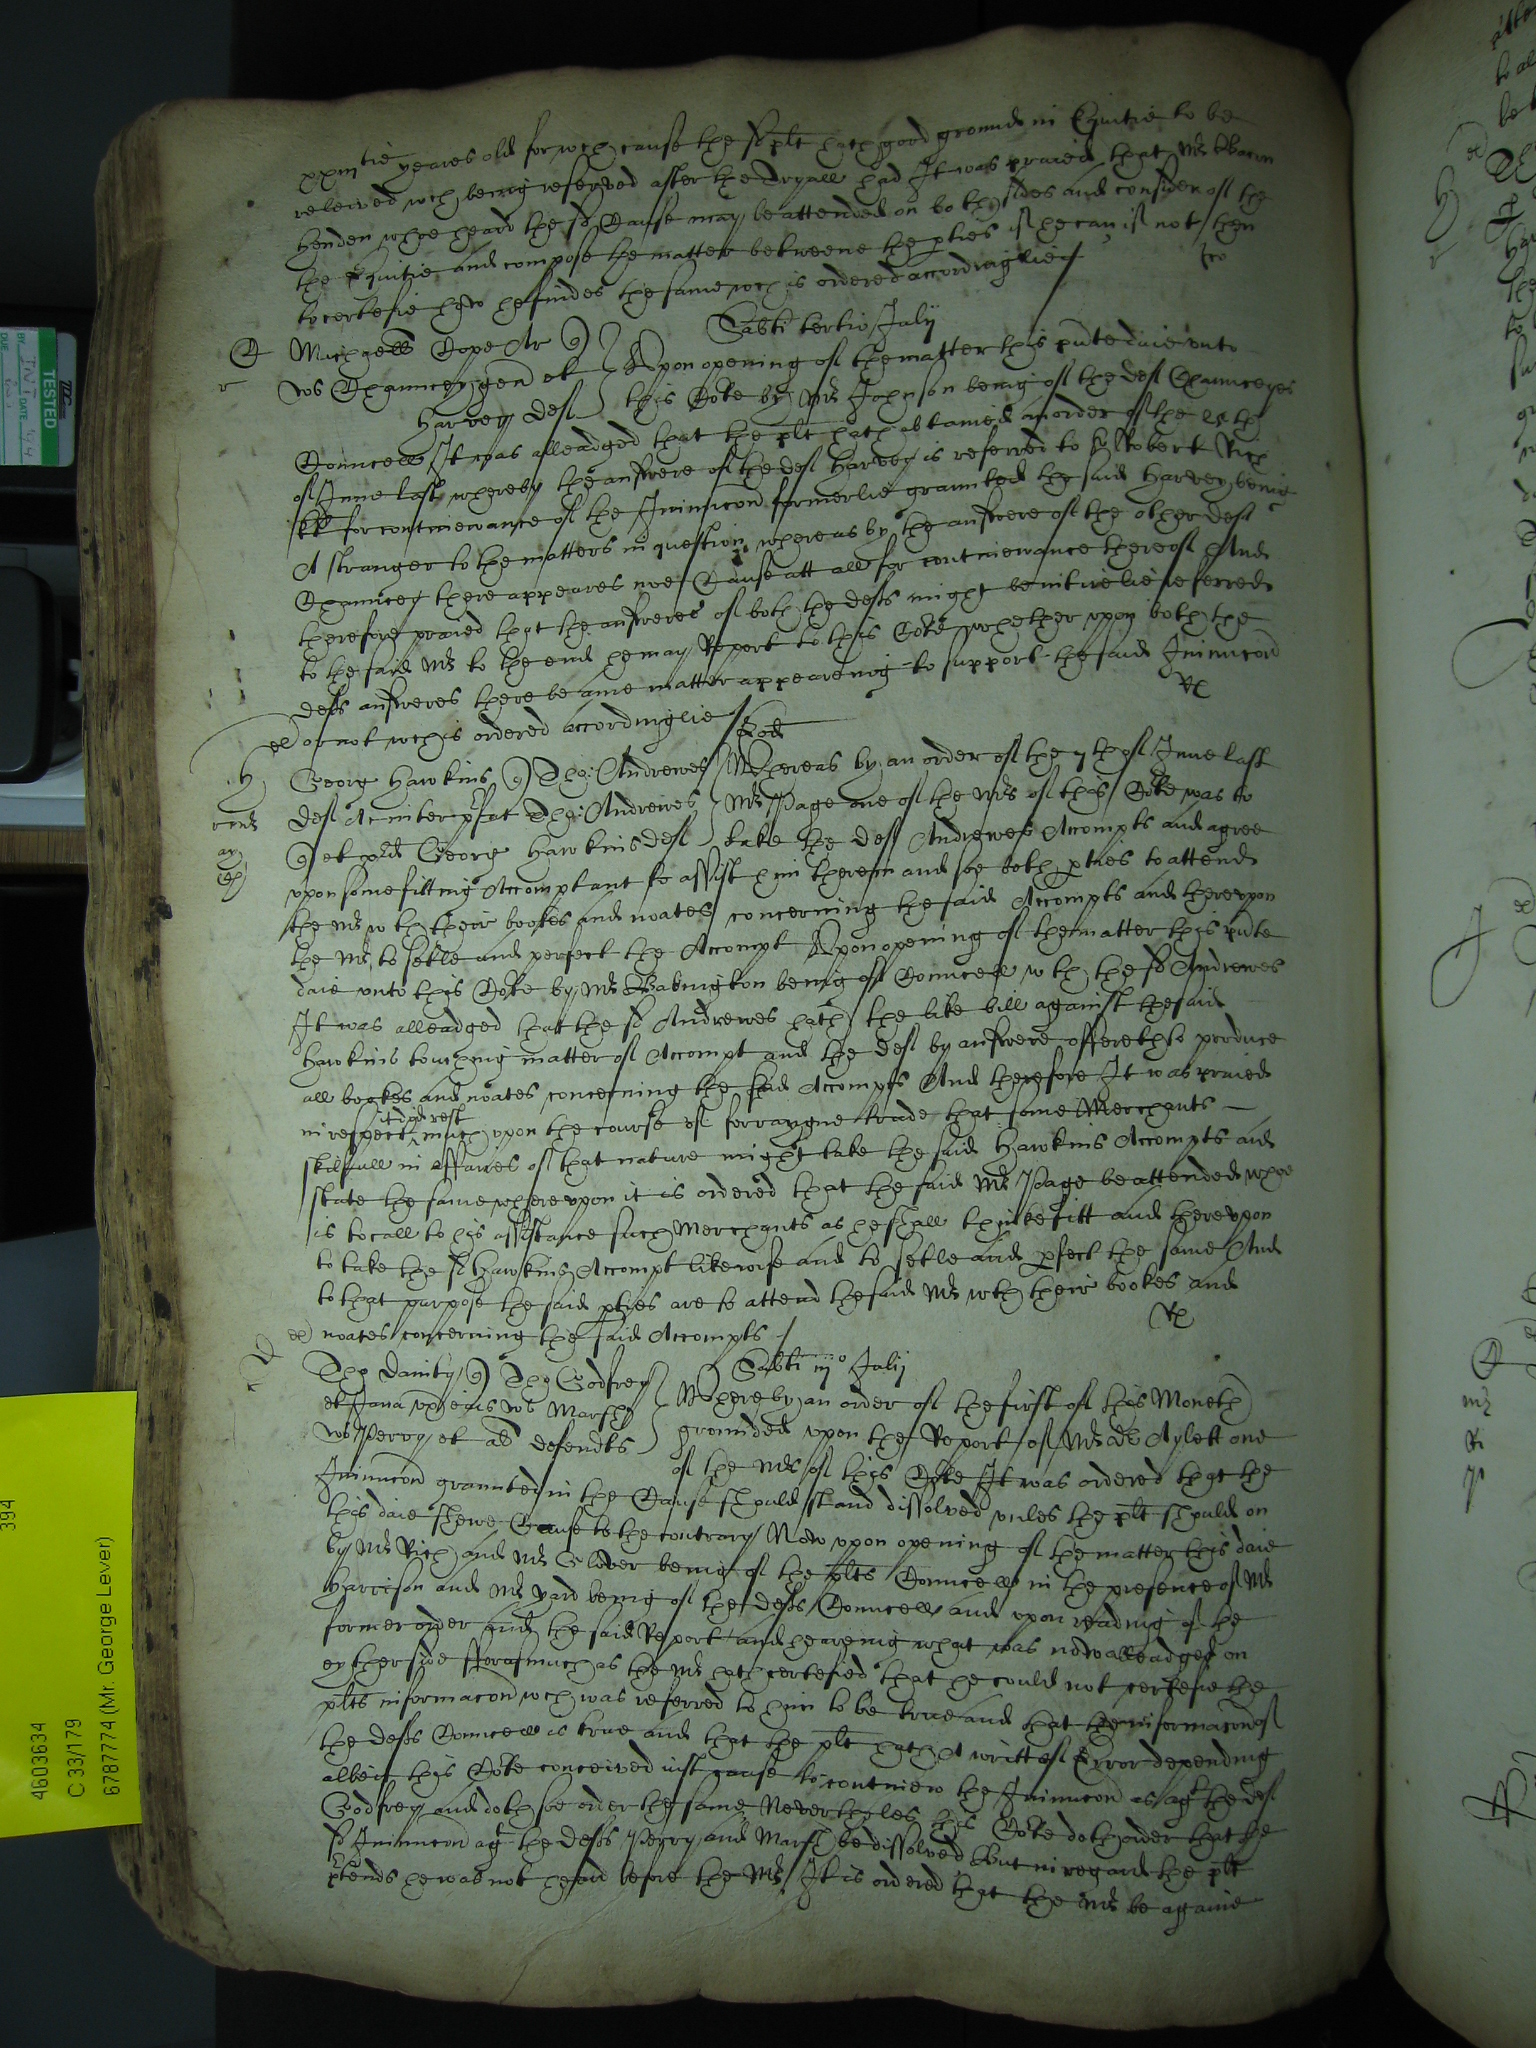 yeares old for wch cause the sd plt hath good ground in Equitie to be
releived wch being reserved after the Tryall had It was praied that Mr
Henden whoe heard the sd Cause may be attended on both sides and consider of the
the Equitie and compose the matter betweene the pties if he can if not then
to certefie how he findes the same wch is ordered accordinglie
Sabti tertio Julij
Michaell Cope Ar Upon opening of the matter this pnte daie unto
Wo Chauncey gen et this Cote by Mr Johnson being of the def Chaunceyes
Harvey def
Councell It was alleadged that the plt hath obtained an order of the th
of June last whereby the answere of the def Harvey is referred to Sr Robert Rich
for contineuance of the Iniuncon formerlie graunted the said Harvey being
A stranger to the matters in question whereas by the answere of the other deft
Chauncey there appeares noe Cause att all for contineuance thereof And
therefore praied that the answeres of both the defts might be intirelie referred
to the said Mr to the end he may Report to this Cote whether upon both the
defts answeres there be anie matter appearenig to support the said Iniuncon
or not wch is ordered accordinglie
Eod
Georg Hawkins Tho: Andrewes Whereas by an order of the 7th of June last
def Ac inter Tho: Andrewes Mr Page one of the Mrs of this Cote was to
et Georg Hawkins def take the deft Andrewes Accompts and agree
upon some fitting Accomptant to assist him therein and soe both pties to attend
the Mr wth their bookes and noates concerning the said Accompts and thereupon
the Mr to setle and perfect the Accompt Upon opening of the matter this pnte
daie unto this Cote by Mr Babington being of Councell wth the sd Andrewes
It was alleadged that the sd Andrewes hath the like bill against the said
Hawkins touching matter of Accompt and the def by answere offereth to produce
all bookes and noates concerning the said Accompts And therefore It was praied
it did rest
in respect much upon the course of forraigne trade that some Merchants
skilfull in affaires of that nature might take the said Hawkins Accompts and
state the same whereupon it is ordered that the said Mr Page be attended whoe
is to call to his assistance such Merchants as he shall thinke fitt and thereupon
to take the sd Hawkins Accompt likewise and to setle and pfect the same And
to that purpose the said pties are to attend the said Mr wth their bookes and
noates concerning the said Accompts
Sabti iijo Julij
Tho Danity Tho Godfrey Whereby an order of the first of this Moneth
et Jana ux eius Wo Marsh grounded upon the Report of Mr Dr Aylett one
Wo Perry et al defendts of the Mrs of this Cote It was ordered that the
Iniuncon graunted in the Cause should stand dissolved unles the plt should on
this daie shewe Cause to the contrary Now upon opening of the matter this daie
by Mr Rich and Mr Glover being of the plts Councell in the presence of Mr
Harrison and Mr Yard being of the defts Councell and upon reading of the
former order and the said Report and heareing what was now alleadged on
eyther side fforasmuch as the Mr hath certefied that he could not certefie the
plts informacon wch was referred to him to be true and that the informacon of
the defts Councell is true and that the plt hath A writt of Error depending
albeit this Cote conceived iust cause to continew the Iniuncon as agt the def
Godfrey and doth soe order the same Neverthles this Cote doth order that the
sd Iniuncon agt the defts Perry and Marsh be dissolved But in regard the plt
ptends he was not heard before the Mr It is ordered that the Mr be againe
TESTED
394
4603634
C 33/179
6787774 (Mr. George Lever)